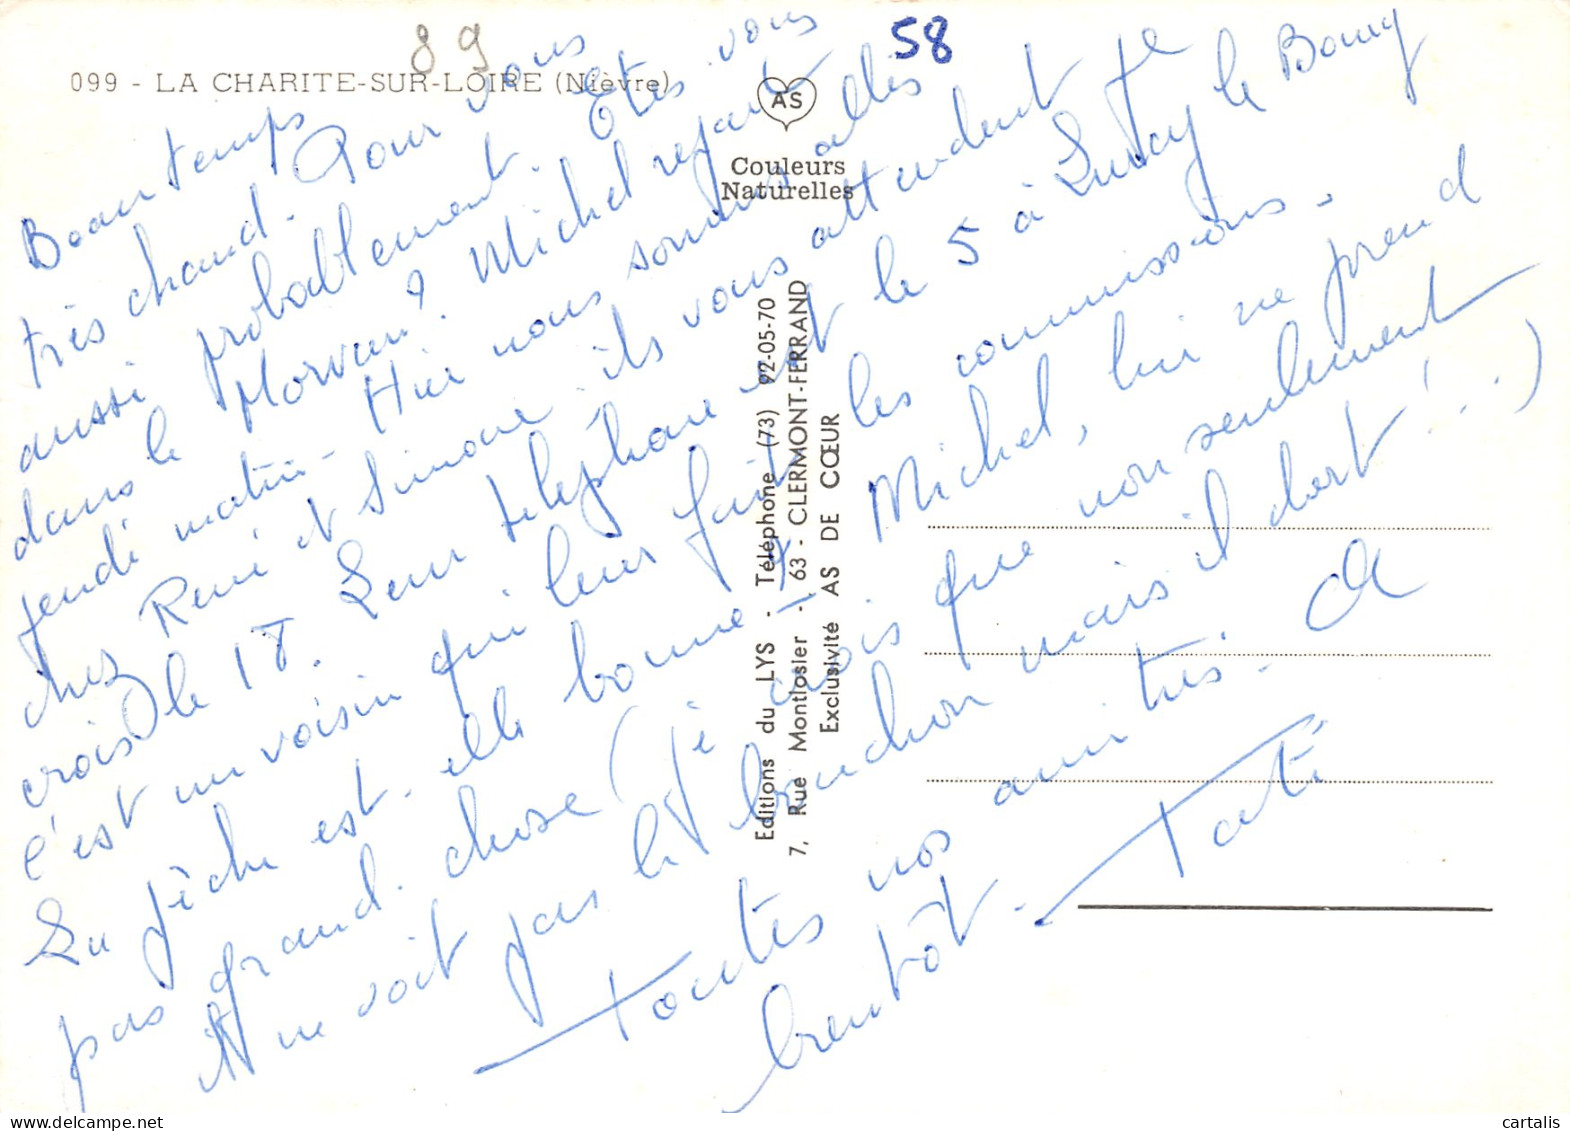 89
58
099 - LA CHARITE-SUR-LOIRE (Nièvre)
AS
Couleurs
Naturelles
Beau temps
très chaud. Pour vous
aussi probablement. Etes vous
dans le Morvan? Michel repart
jeudi matin - Hier nous sommes allés
chez René et Simone ils vous attendent je
crois le 18. Leur téléphone est le 5 à Lurcy le Bourg
c'est un voisin qui leur fait les commissions.
La pêche est-elle bonne? Michel, lui ne prend
pas grand chose (je crois que non seulement
il ne voit pas le bouchon mais il dort!..)
Toutes nos amitiés. A
bientôt - Tati
Editions du LYS - Téléphone (73) 92-05-70
7, Rue Montlosier - 63 - CLERMONT-FERRAND
Exclusivité AS DE CŒUR
cartalis
delcampe.net